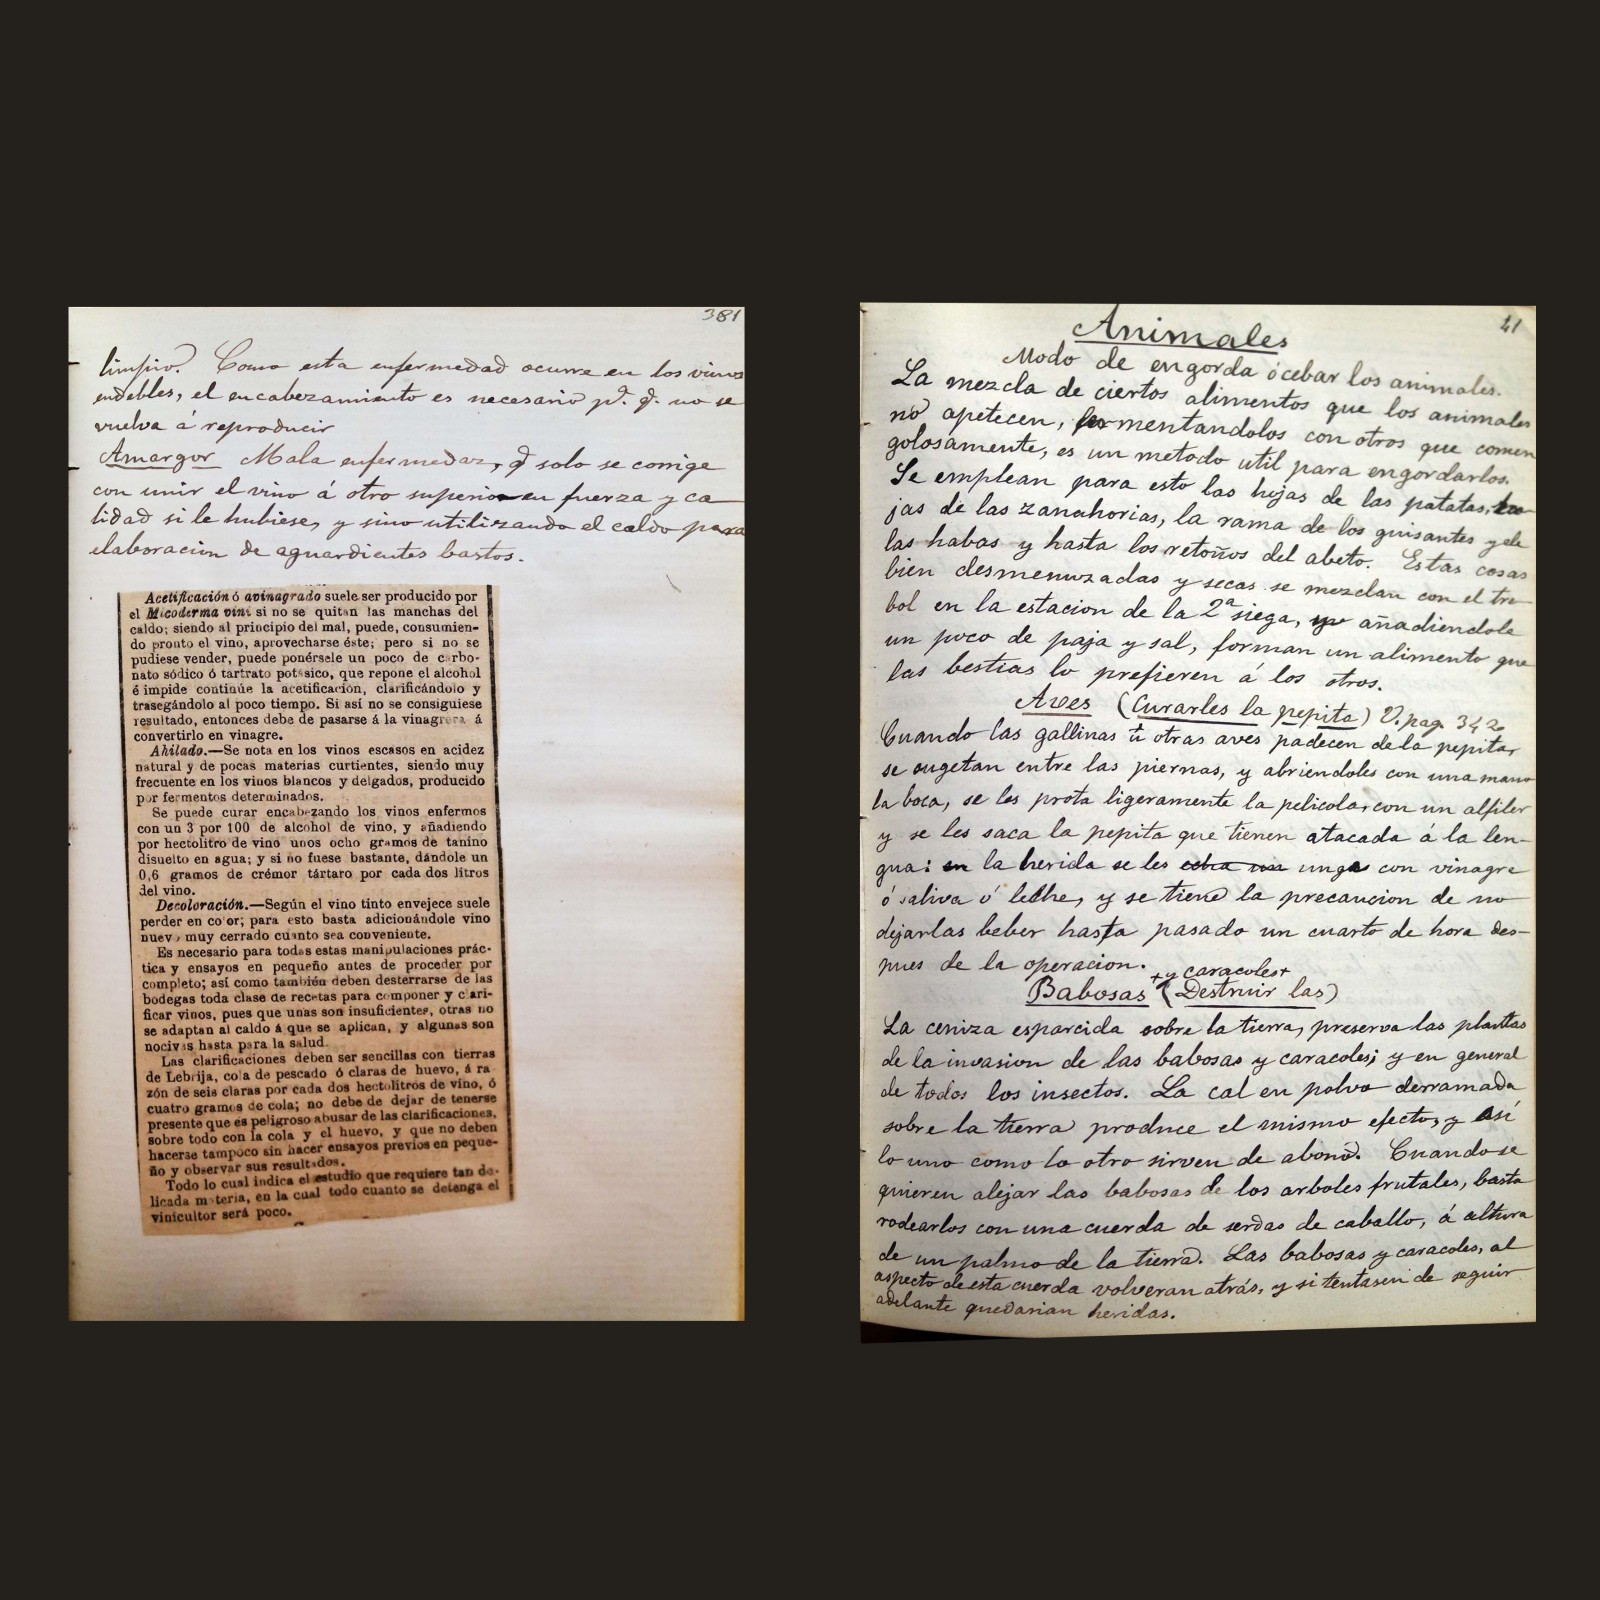 381
limpio. Como esta enfermedad ocurre en los vinos
endebles, el encabezamiento es necesario pª. q. no se
vuelva á reproducir
Amargor Mala enfermedaz, q solo se corrige
con unir el vino á otro superior en fuerza y ca
lidad si le hubiese, y sino utilizando el caldo para
elaboracion de aguardientes bastos.
Acetificación ó avinagrado suele ser producido por
el Micoderma vini si no se quitan las manchas del
caldo; siendo al principio del mal, puede, consumien-
do pronto el vino, aprovecharse éste; pero si no se
pudiese vender, puede ponérsele un poco de carbo-
nato sódico ó tartrato potásico, que repone el alcohol
é impide continúe la acetificación, clarificándolo y
trasegándolo al poco tiempo. Si así no se consiguiese
resultado, entonces debe de pasarse á la vinagrera á
convertirlo en vinagre.
Ahilado.—Se nota en los vinos escasos en acidez
natural y de pocas materias curtientes, siendo muy
frecuente en los vinos blancos y delgados, producido
por fermentos determinados.
Se puede curar encabezando los vinos enfermos
con un 3 por 100 de alcohol de vino, y añadiendo
por hectolitro de vino unos ocho gramos de tanino
disuelto en agua; y si no fuese bastante, dándole un
0,6 gramos de crémor tártaro por cada dos litros
del vino.
Decoloración.—Según el vino tinto envejece suele
perder en color; para esto basta adicionándole vino
nuevo muy cerrado cuanto sea conveniente.
Es necesario para todas estas manipulaciones prác-
tica y ensayos en pequeño antes de proceder por
completo; así como también deben desterrarse de las
bodegas toda clase de recetas para componer y clari-
ficar vinos, pues que unas son insuficientes, otras no
se adaptan al caldo á que se aplican, y algunas son
nocivas hasta para la salud.
Las clarificaciones deben ser sencillas con tierras
de Lebrija, cola de pescado ó claras de huevo, á ra
zón de seis claras por cada dos hectolitros de vino, ó
cuatro gramos de cola; no debe de dejar de tenerse
presente que es peligroso abusar de las clarificaciones,
sobre todo con la cola y el huevo, y que no deben
hacerse tampoco sin hacer ensayos previos en peque-
ño y observar sus resultados.
Todo lo cual indica el estudio que requiere tan de-
licada materia, en la cual todo cuanto se detenga el
vinicultor será poco.
41
Animales
Modo de engorda ó cebar los animales.
La mezcla de ciertos alimentos que los animales
no apetecen, fermentandolos con otros que comen
golosamente, es un metodo util para engordarlos.
Se emplean para esto las hojas de las patatas,
jas de las zanahorias, la rama de los guisantes y de
las habas y hasta los retoños del abeto. Estas cosas
bien desmenuzadas y secas se mezclan con el tre-
bol en la estacion de la 2ª siega, y añadiendole
un poco de paja y sal, forman un alimento que
las bestias lo prefieren á los otros.
Aves (Curarles la pepita) V. pag. 342
Cuando las gallinas ú otras aves padecen de la pepita,
se sugetan entre las piernas, y abriendoles con una mano
la boca, se les frota ligeramente la pelicola, con un alfiler
y se les saca la pepita que tienen atacada á la len-
gua: en la herida se les echa una unga con vinagre
ó saliva ó leche, y se tiene la precaucion de no
dejarlas beber hasta pasado un cuarto de hora des-
pues de la operacion.
+ y caracoles +
Babosas (Destruir las)
La ceniza esparcida sobre la tierra, preserva las plantas
de la invasion de las babosas y caracoles; y en general
de todos los insectos. La cal en polvo derramada
sobre la tierra produce el mismo efecto, y así
lo uno como lo otro sirven de abono. Cuando se
quieren alejar las babosas de los arboles frutales, basta
rodearlos con una cuerda de serdas de caballo, á altura
de un palmo de la tierra. Las babosas y caracoles, al
aspecto de esta cuerda volveran atrás, y si tentasen de seguir
adelante quedarian heridas.